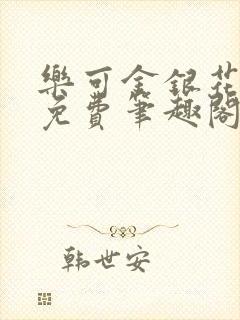 樂可金銀花
免費筆趣閣
韩世安